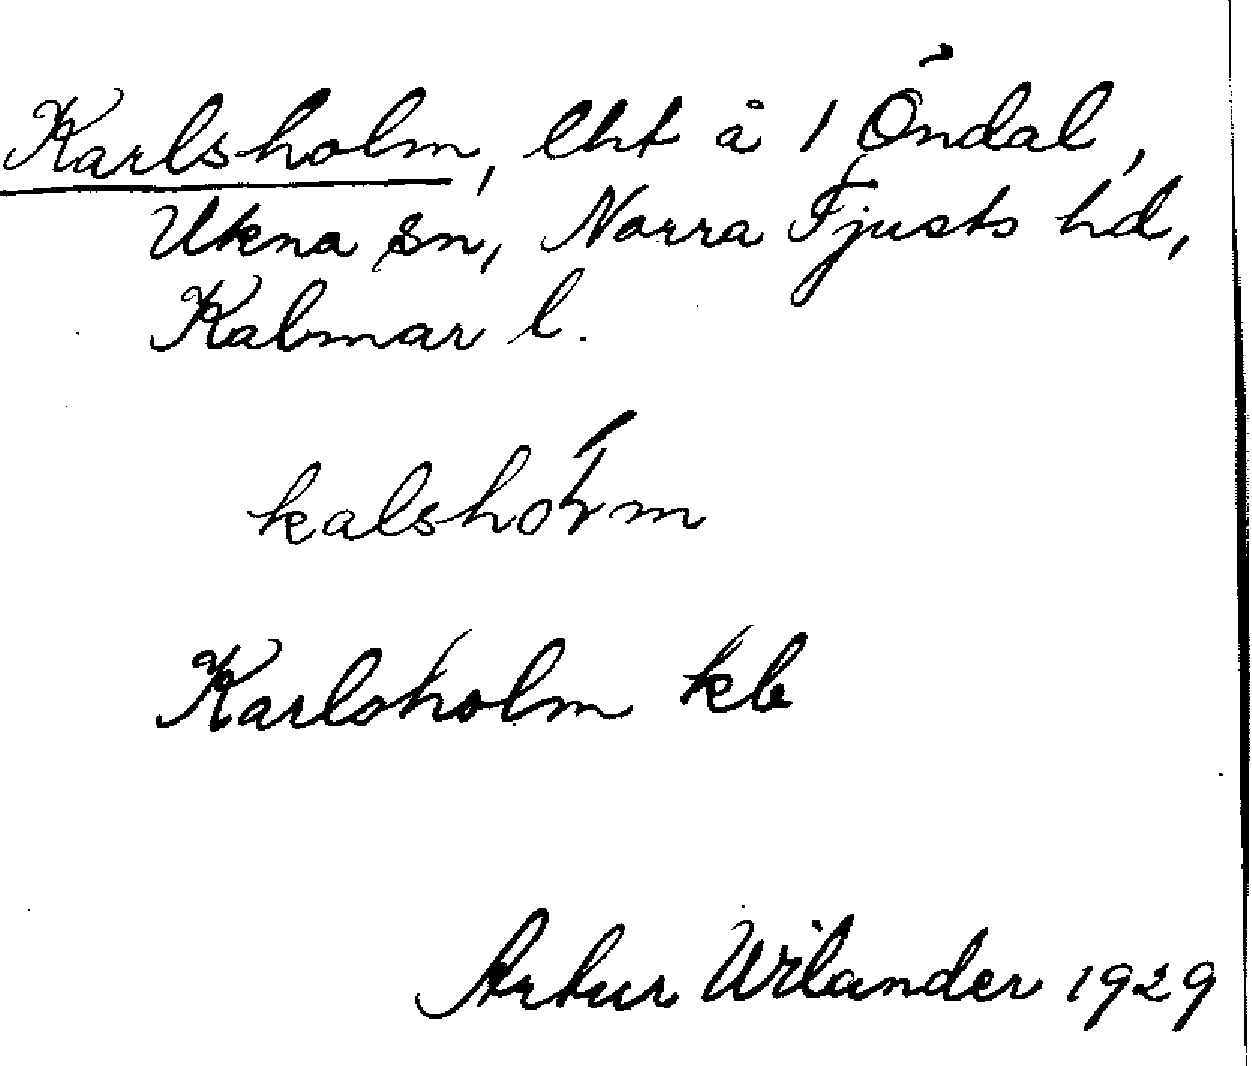 Karlsholm, lht å 1 Öndal,
Ukna sn, Norra Tjusts hd,
Kalmar l.
kalshoɫm
Karlsholm kb
Artur Wilander 1929